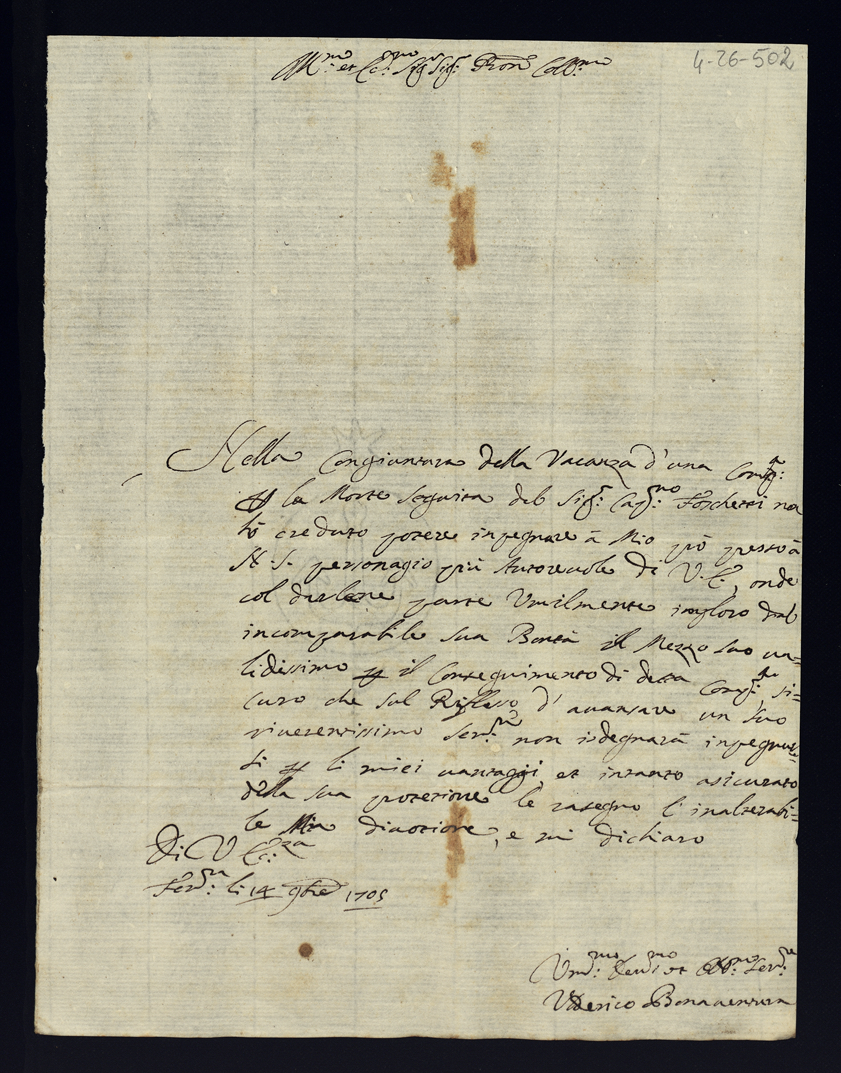 Ill.mo et Ecc.mo Sig.r Sig.r Pron Coll.mo
4-26-502
Nella Congiuntura della Vacanza d'una Comp.a
p la Morte seguita del Sig.r Cap.no Foschetti no
hò creduto potere inpegnare à Mio prò presso à
N. S. personagio più Autoreuole di V. E., onde
col darlene parte Vmilmente imploro dal
incomparabile sua Bontà il Mezzo suo ua=
lidissimo p il Conseguimento di detta Comp.a si=
curo che sul Riflesso d'auansare un suo
riuerentissimo Ser.re non isdegnarà inpegnar=
si p li miei uantaggi, et intanto asicurato
della sua protezione le rasegno l'inalterabi=
le Mia diuozione, e mi dichiaro
Di V Ecc.za
Fer.ra li 14 9bre 1705
Vm.mo Deu.mo et Obb.mo Ser.re
Vderico Bonauentura